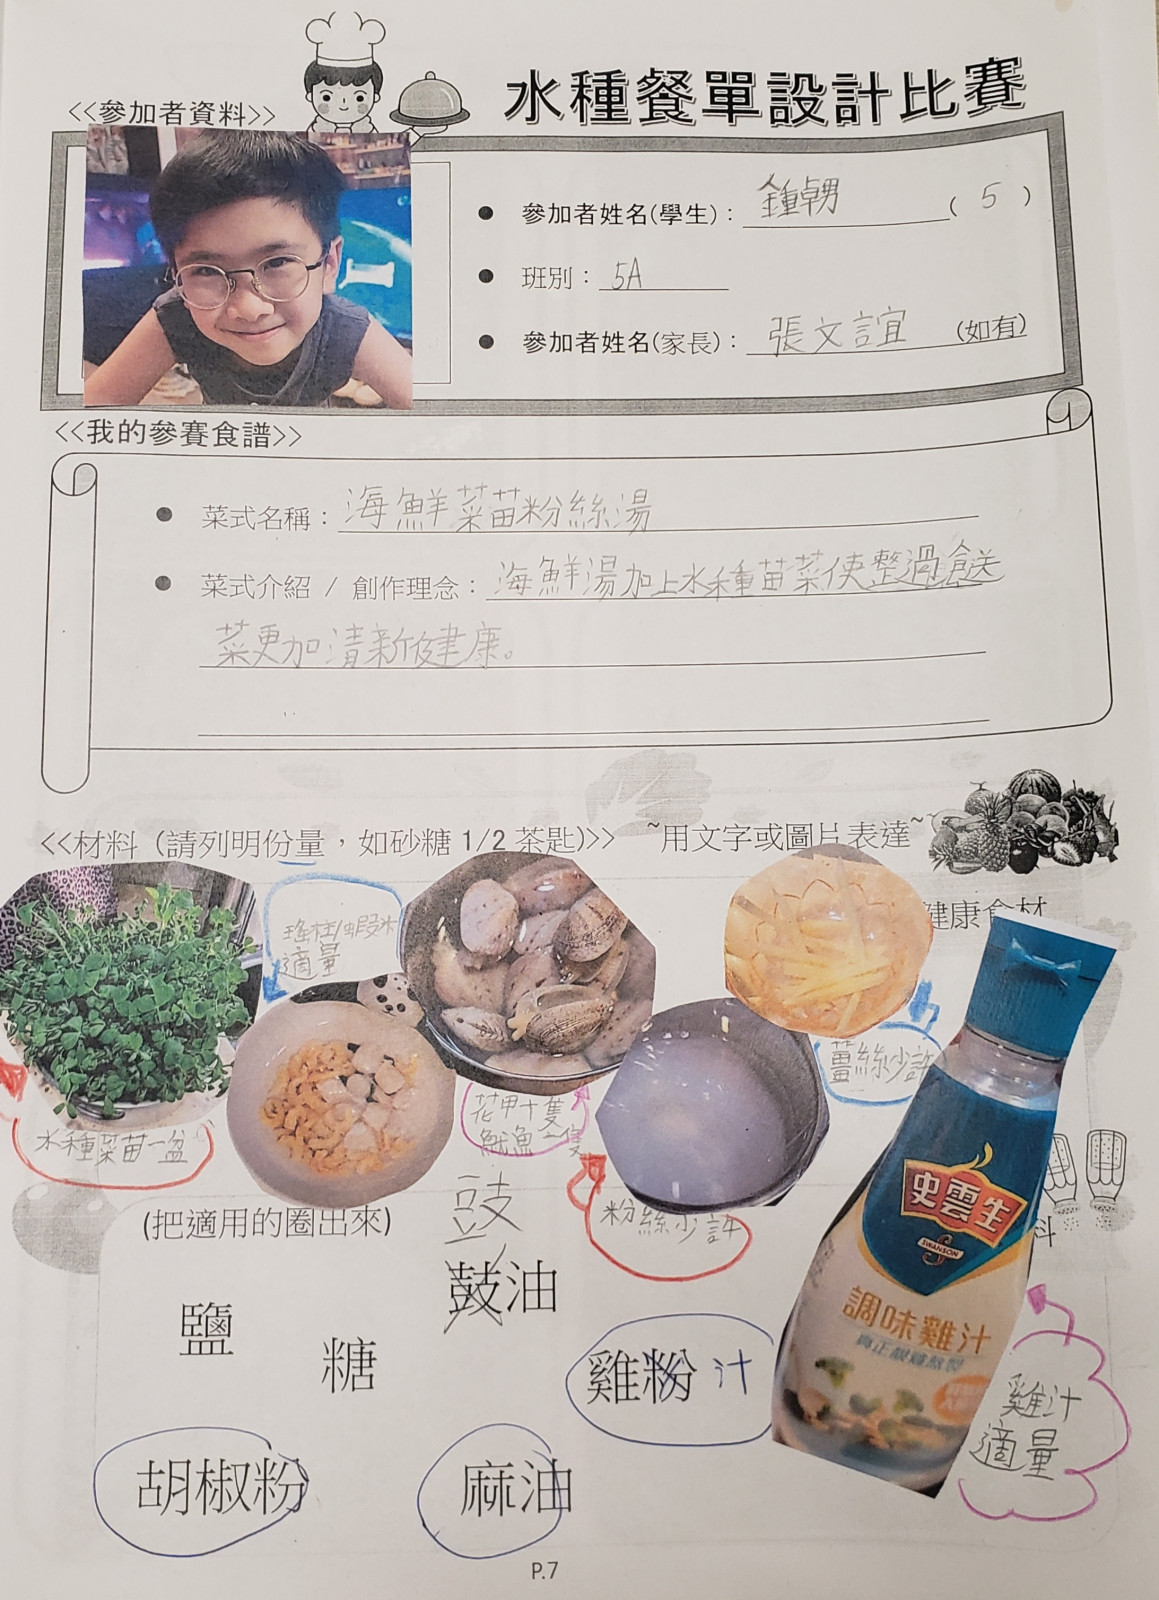 水種餐單設計比賽
<<參加者資料>>
參加者姓名(學生)：鍾 (5)
班別：5A
參加者姓名(家長)：張文誼 (如有)
<<我的參賽食譜>>
菜式名稱：海鮮菜苗粉絲湯
菜式介紹 / 創作理念：海鮮湯加上水種苗菜使整
菜更加清新健康。
<<材料 (請列明份量，如砂糖 1/2 茶匙)>> ~用文字或圖片表達~
健康食材
瑤柱/蝦米
適量
薑絲少許
水種菜苗一盆
花甲十隻
魷魚一隻
粉絲少許
(把適用的圈出來)
豉
鼓油
鹽
糖
雞粉 汁
胡椒粉
麻油
史雲生
SWANSON
調味雞汁
真正靚雞熬製
雞汁
適量
料
P.7